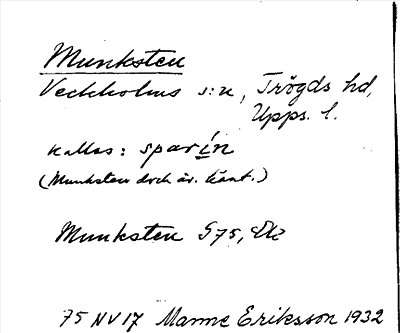 Munksten
Veckholms s:n, Trögds hd,
Upps. l.
kallas: sparín
(Munksten dock äv. känt.)
Munksten S75, Ek
75 NV 17 Manne Eriksson 1932